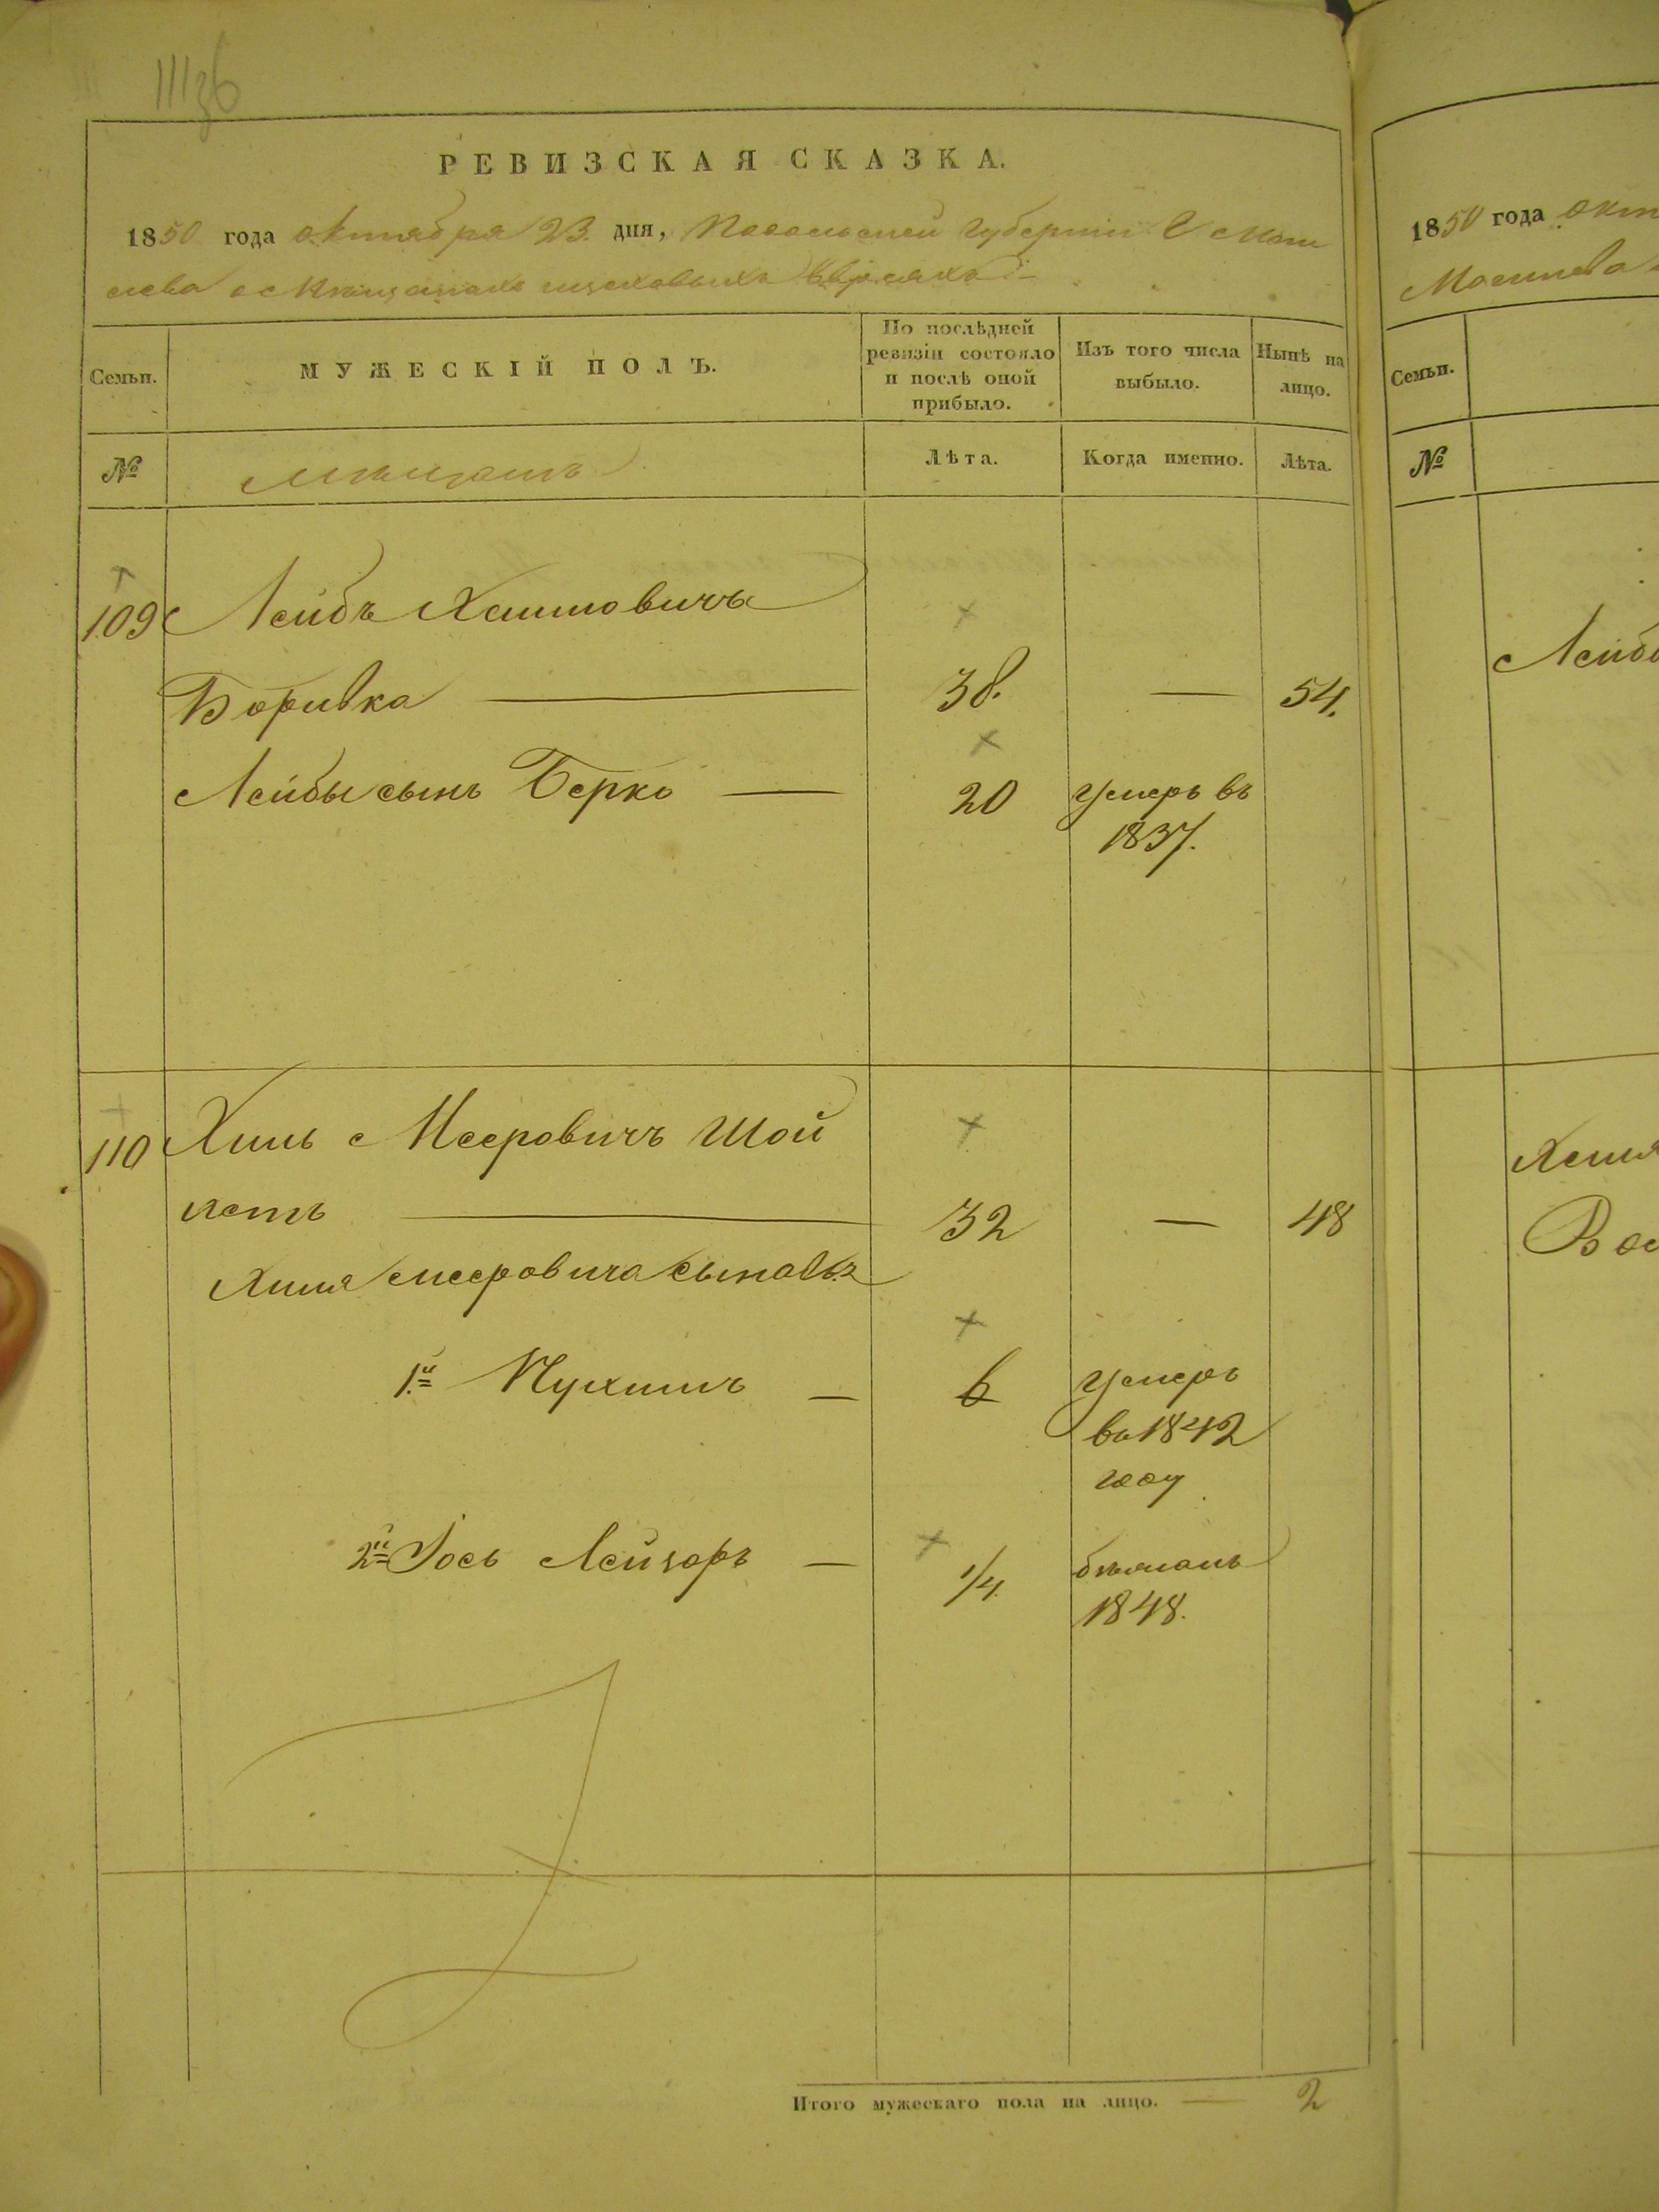 РЕВИЗСКАЯ СКАЗКА.
1850 года октября 23 дня, Подольской Губернии Г. Моги
лева о мѣщанахъ цеховыхъ Евреяхъ
Семьи.
МУЖЕСКІЙ ПОЛЪ.
По послѣдней ревизіи состояло и послѣ оной прибыло.
Изъ того числа выбыло.
Нынѣ на лицо.
№
мѣщанъ
Лѣта.
Когда именно.
Лѣта.
109 Лейбъ Хаимовичъ
Боривка — 38. — 54.
Лейбы сынъ Берко — 20 умеръ въ
1837.
110 Хиль Мееровичъ Шой
летъ — 32 — 48
Хиля Мееровича сыновья
1й — 6 умеръ
въ 1842
году
2й Іось Лейзоръ — 1/4 бѣжалъ
1848.
Итого мужескаго пола на лицо. — 2
1850 года окт
Могилева
Семьи.
№
Лейбы
Хиля